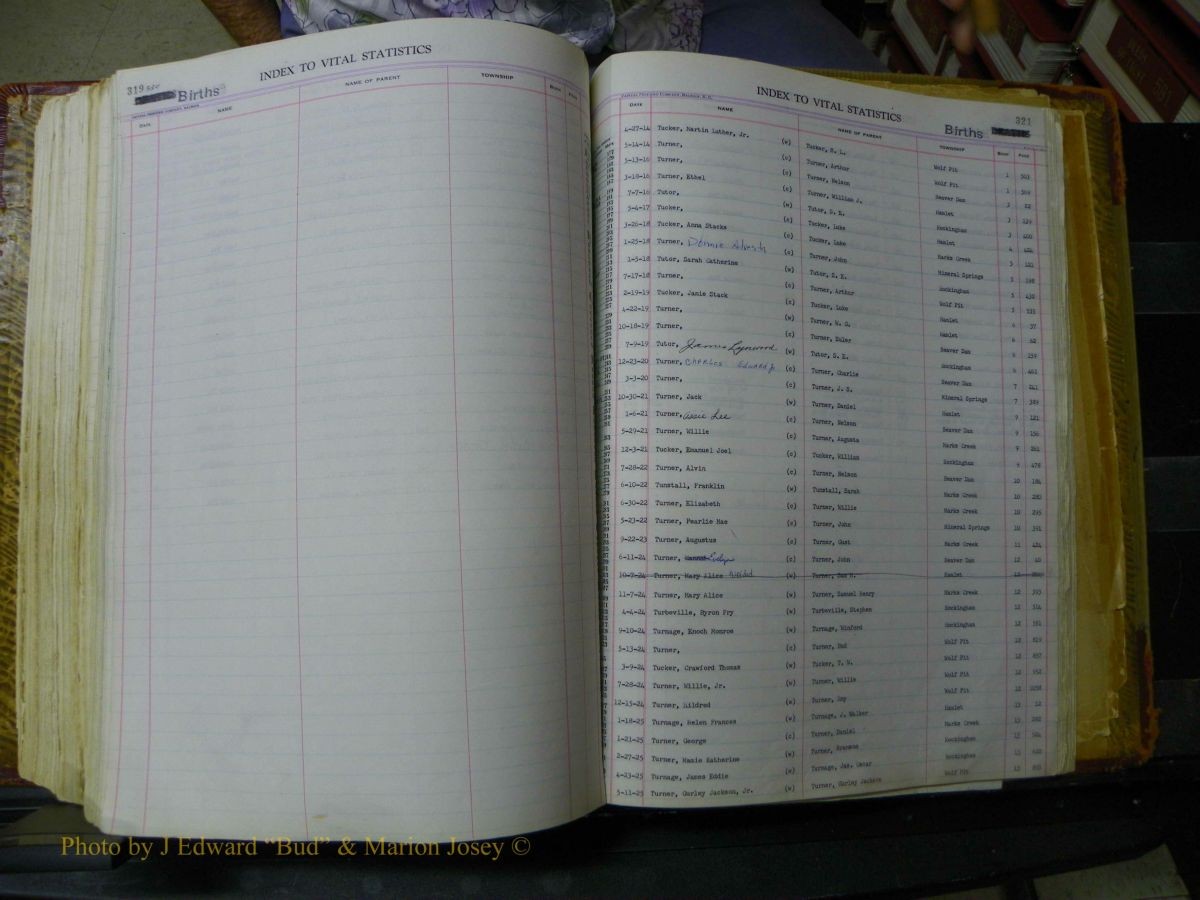 319
Births
INDEX TO VITAL STATISTICS
Date NAME NAME OF PARENT TOWNSHIP Book Page
INDEX TO VITAL STATISTICS
Births 321
Date NAME NAME OF PARENT TOWNSHIP Book Page
4-27-14 Tucker, Martin Luther, Jr. (w) Tucker, S. L. Wolf Pit 1 503
5-14-14 Turner, (c) Turner, Arthur Wolf Pit 1 509
5-13-16 Turner, (c) Turner, Nelson Beaver Dam 3 82
3-18-16 Turner, Ethel (c) Turner, William J. Hamlet 3 229
7-7-16 Tutor, (w) Tutor, S. E. Rockingham 3 400
5-4-17 Tucker, (c) Tucker, Luke Hamlet 4
3-26-18 Tucker, Anna Stacks (c) Tucker, Luke Marks Creek 5
1-25-18 Turner, (c) Turner, John Mineral Springs 5 198
1-5-18 Tutor, Sarah Catherine (w) Tutor, S. E. Rockingham 5 438
7-17-18 Turner, (c) Turner, Arthur Wolf Pit 5
2-19-19 Tucker, Janie Stack (c) Tucker, Luke Hamlet 6 37
4-22-19 Turner, (w) Turner, W. O. Hamlet 6 62
10-18-19 Turner, (c) Turner, Euler Beaver Dam 6 159
7-9-19 Tutor, James Lynwood (w) Tutor, S. E. Rockingham 6 461
12-23-20 Turner, Charles Edward Jr (c) Turner, Charlie Beaver Dam 7 241
3-3-20 Turner, (c) Turner, J. S. Mineral Springs 7 389
10-30-21 Turner, Jack (w) Turner, Daniel Hamlet 9 121
1-6-21 Turner, Assie Lee (c) Turner, Nelson Beaver Dam 9 156
5-29-21 Turner, Willie (c) Turner, Augusta Marks Creek 9 261
12-3-21 Tucker, Emanuel Joel (c) Tucker, William Rockingham 9 478
7-28-22 Turner, Alvin (c) Turner, Nelson Beaver Dam 10 184
6-10-22 Tunstall, Franklin (w) Tunstall, Sarah Marks Creek 10 280
6-30-22 Turner, Elizabeth (c) Turner, Willie Marks Creek 10 295
5-23-22 Turner, Pearlie Mae (c) Turner, John Mineral Springs 10 391
9-22-23 Turner, Augustus (c) Turner, Gust Marks Creek 11 434
6-11-24 Turner, (c) Turner, John Beaver Dam 12 40
10-7-24 Turner, Mary Alice Voided (w) Turner, Sam H. Hamlet 12
11-7-24 Turner, Mary Alice (w) Turner, Samuel Henry Marks Creek 12 393
4-4-24 Turbeville, Byron Fry (w) Turbeville, Stephen Rockingham 12 514
9-10-24 Turnage, Enoch Monroe (w) Turnage, Winford Rockingham 12 581
5-13-24 Turner, (c) Turner, Bud Wolf Pit 12 829
3-9-24 Tucker, Crawford Thomas (w) Tucker, T. W. Wolf Pit 12 857
7-28-24 Turner, Willie, Jr. (w) Turner, Willie Wolf Pit 12 952
12-15-24 Turner, Hildred (w) Turner, Roy Wolf Pit 12 1058
1-18-25 Turnage, Helen Frances (w) Turnage, J. Walker Hamlet 13 12
1-21-25 Turner, George (c) Turner, Daniel Marks Creek 13 202
2-27-25 Turner, Mamie Katherine (w) Turner, Branson Rockingham 13 564
4-23-25 Turnage, James Eddie (w) Turnage, Jas. Oscar Rockingham 13 620
5-11-25 Turner, Gurley Jackson, Jr. (w) Turner, Gurley Jackson Wolf Pit 13 855
Photo by J Edward “Bud” & Marion Josey ©